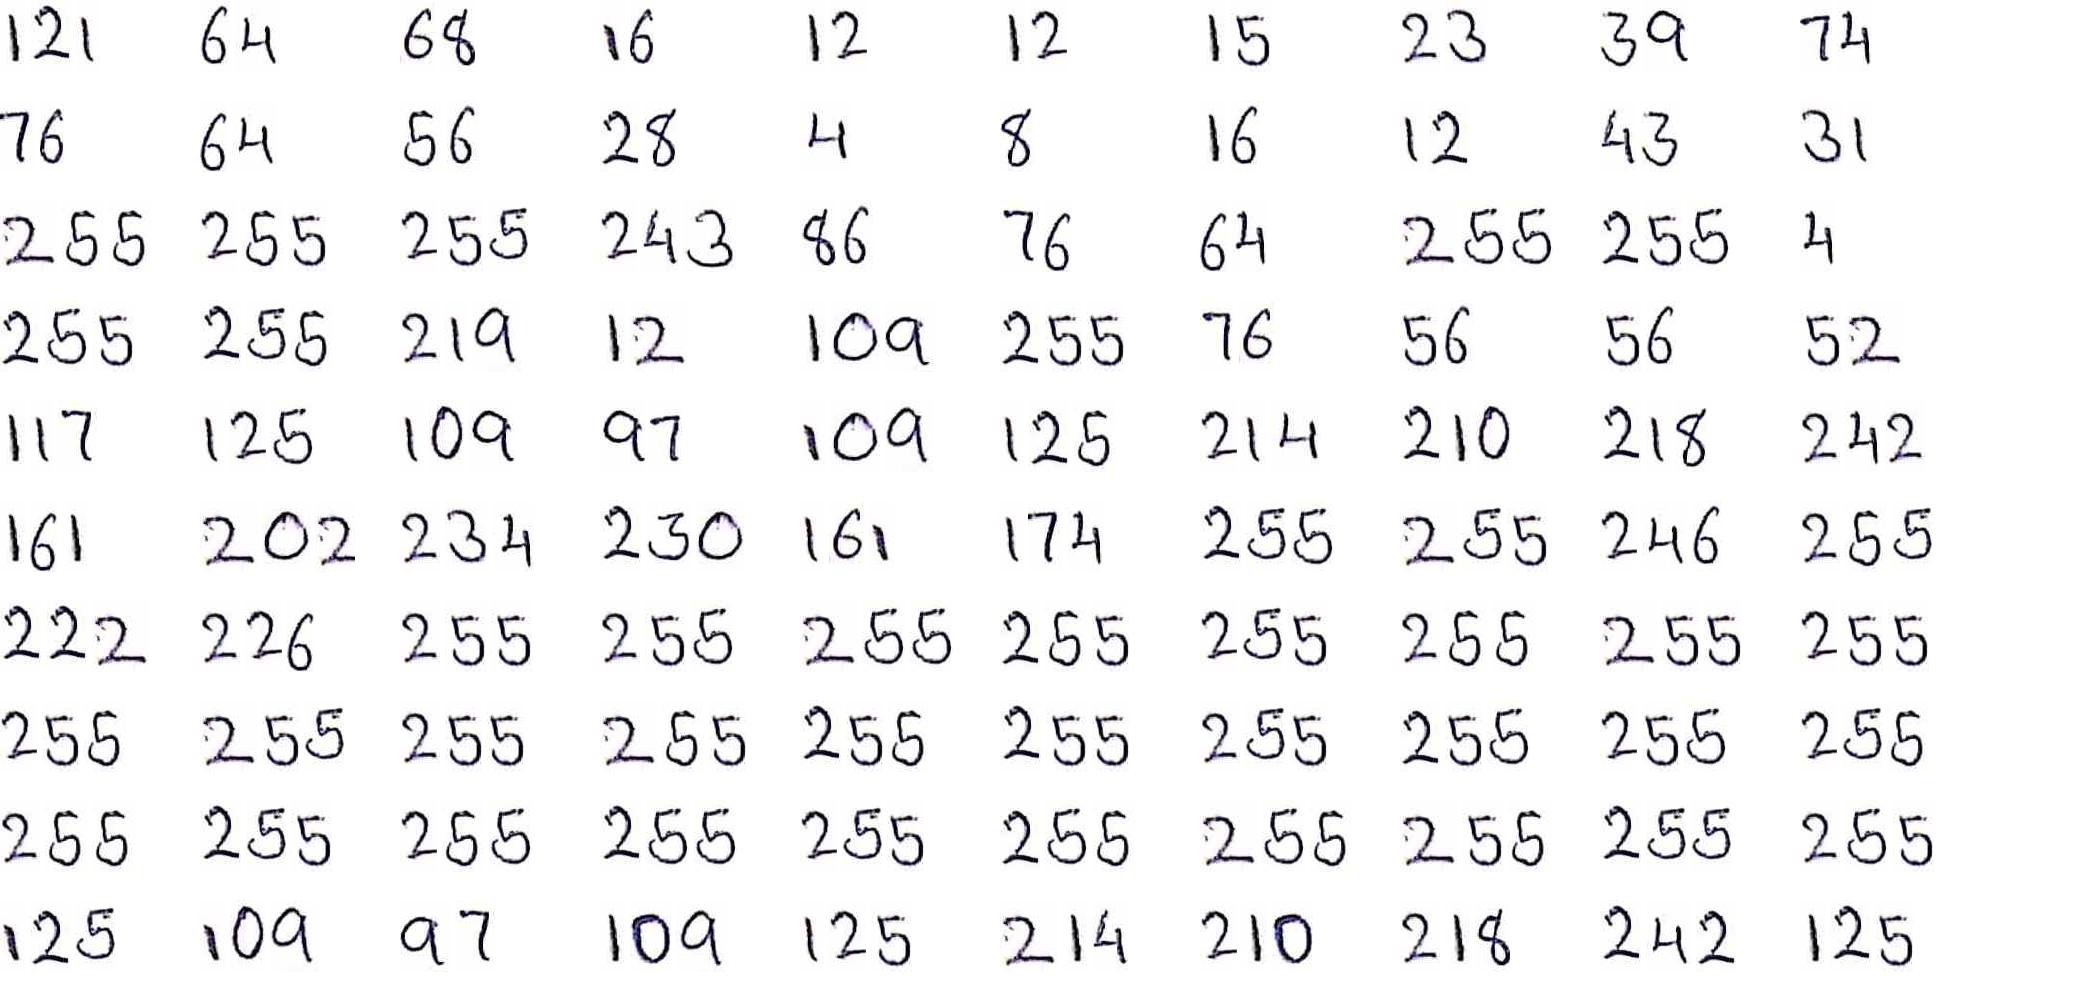 121 64 68 16 12 12 15 23 39 74
76 64 56 28 4 8 16 12 43 31
255 255 255 243 86 76 64 255 255 4
255 255 219 12 109 255 76 56 56 52
117 125 109 97 109 125 214 210 218 242
161 202 234 230 161 174 255 255 246 255
222 226 255 255 255 255 255 255 255 255
255 255 255 255 255 255 255 255 255 255
255 255 255 255 255 255 255 255 255 255
125 109 97 109 125 214 210 218 242 125